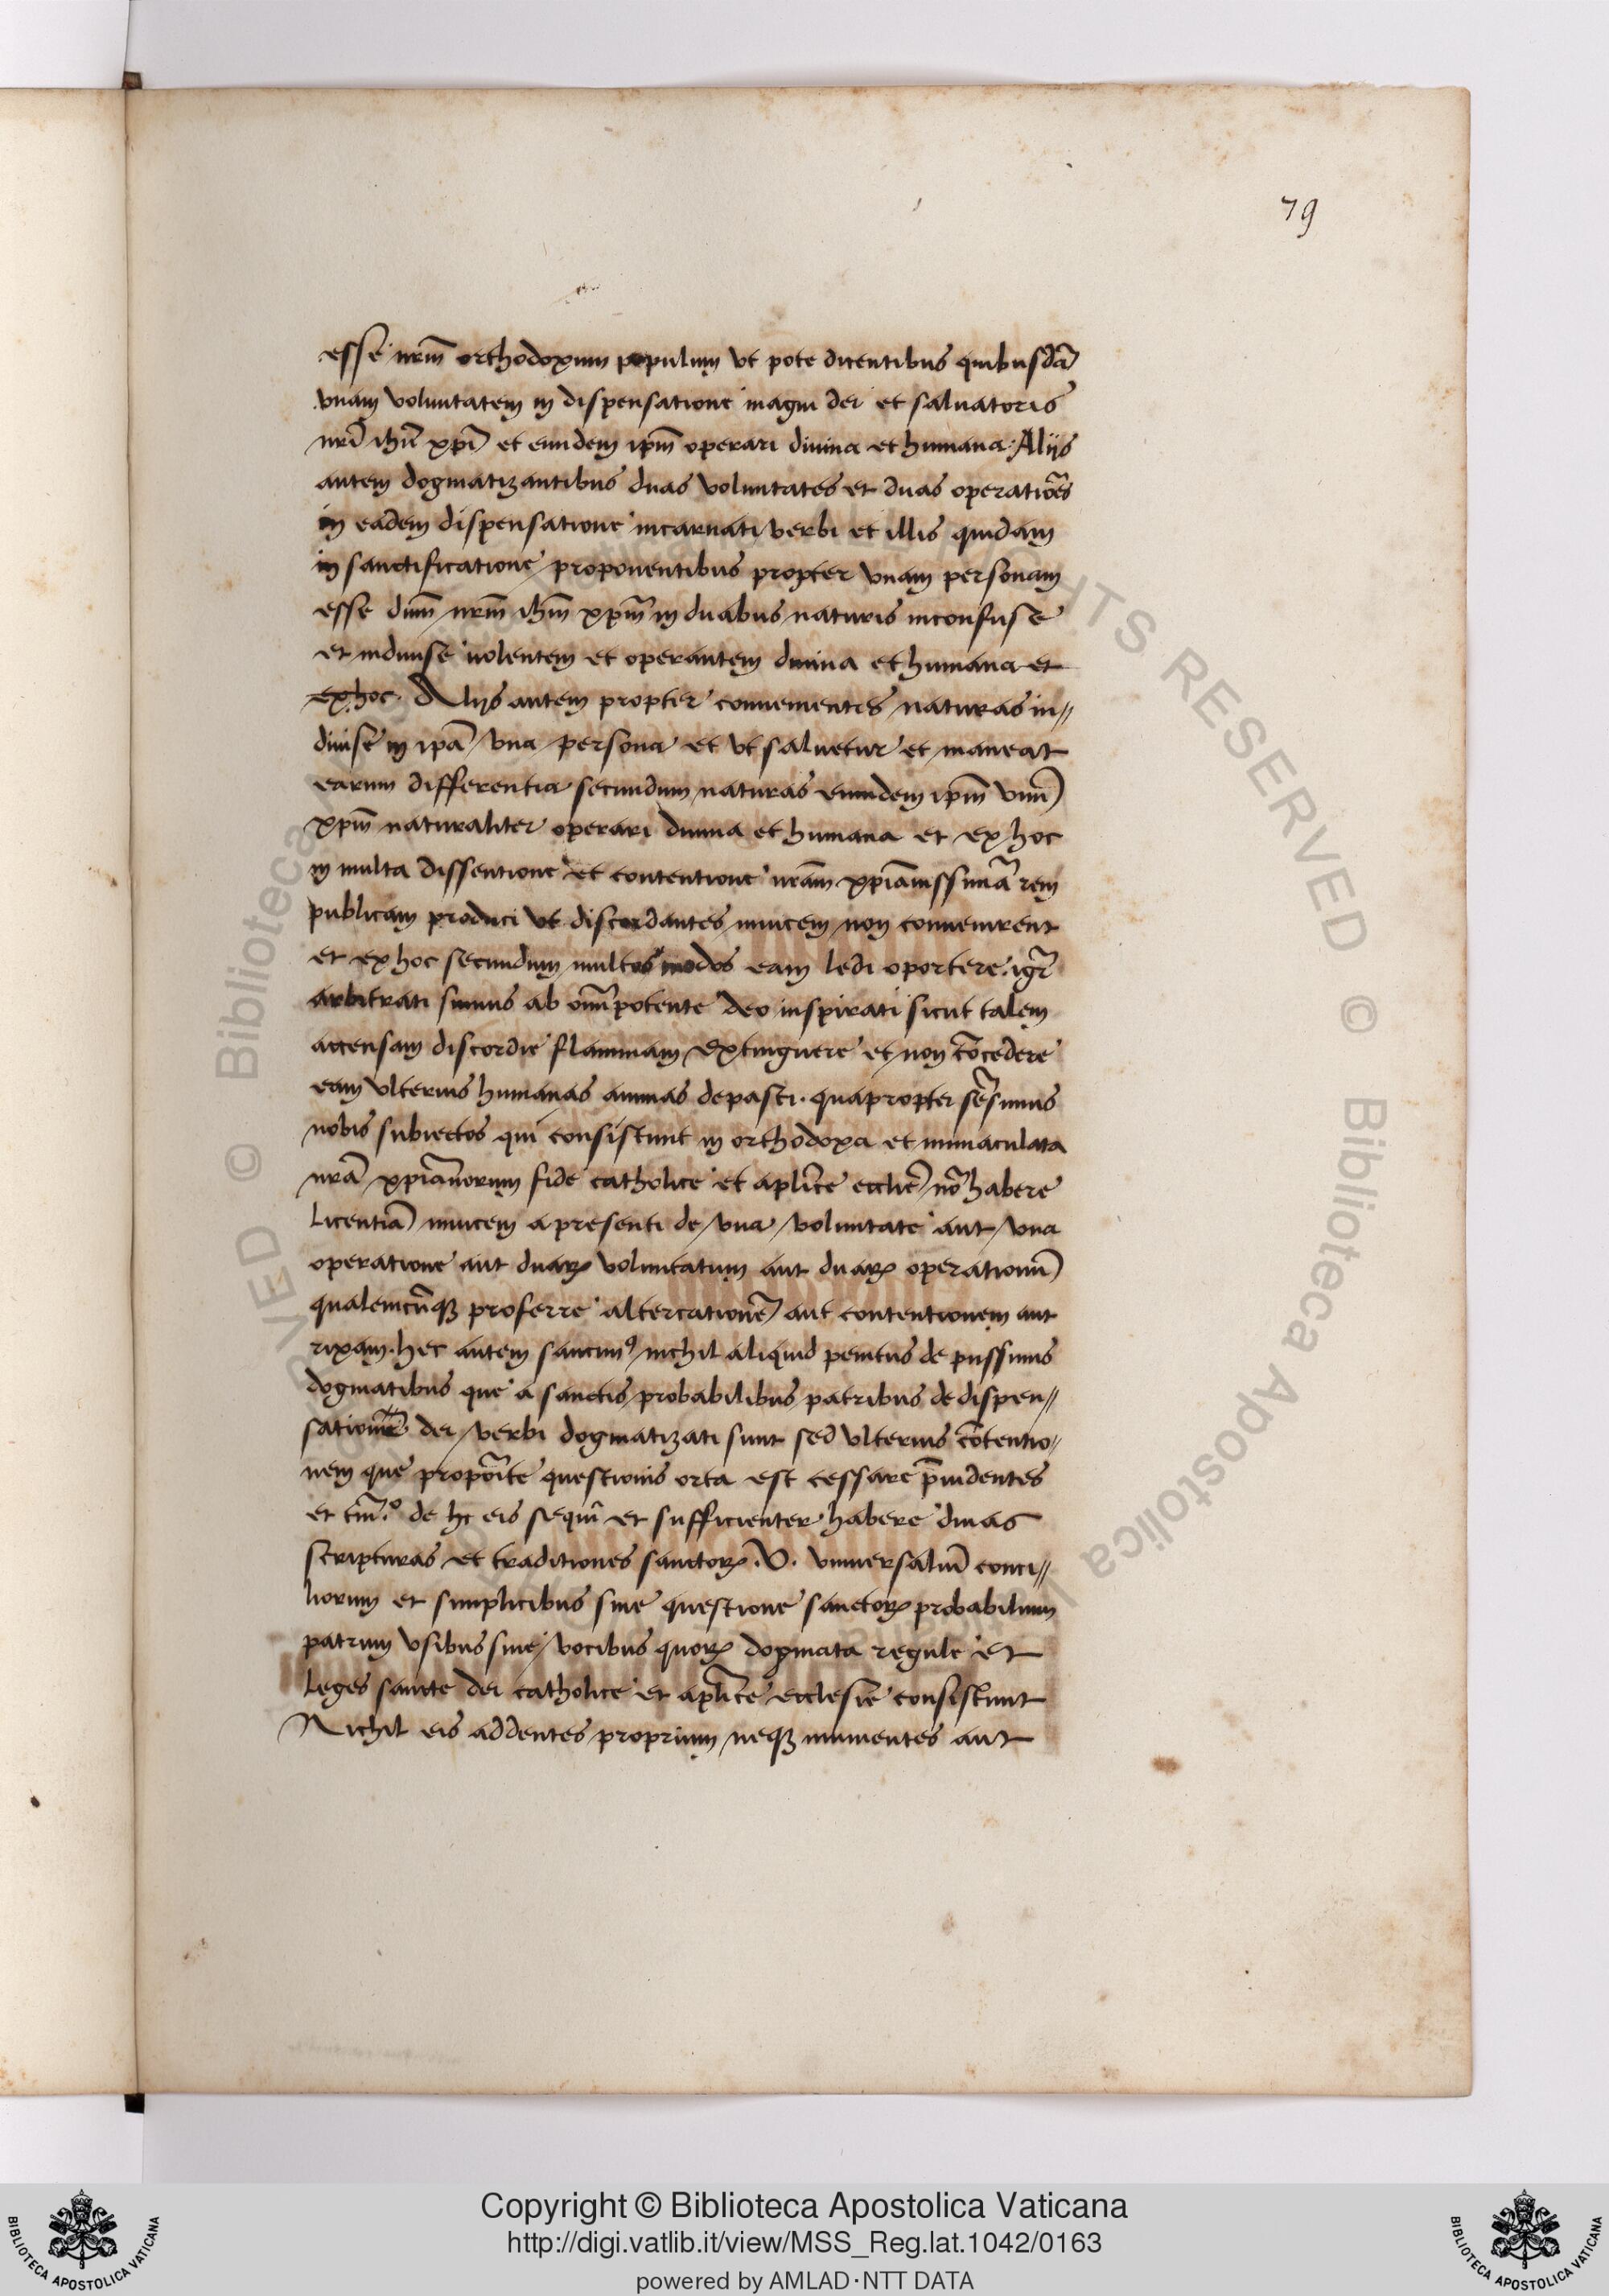 79
esse nrm̄ orthodoxum populum vt pote dicentibus quibusdā
vnam voluntatem in dispensatione magni dei et saluatoris
nrī ihū xpī et eundem ipm̄ operari diuina et humana. Alijs
autem dogmatizantibus duas voluntates et duas operatiōes
in eadem dispensatione incarnati verbi et illis quidam
in sanctificatione proponentibus propter vnam personam
esse dnm̄ nrm̄ ihm̄ xpm̄ in duabus naturis inconfuse
et indiuise uolentem et operantem diuina et humana et
ex hoc. Alijs autem propter conuenientes naturas in//
diuise in ipā vna persona et vt saluetur et maneat
earum differentia secundum naturas eundem ipm̄ vnū
xpm̄ naturaliter operari diuina et humana et ex hoc
in multa dissentione et contentione nrām xpiānissimā rem
publicam produci vt discordantes inuicem non conuenirent
et ex hoc secundum multos modos eam ledi oportere. igr̄
arbitrati sumus ab omīpotente deo inspirati sicut talem
accensam discordie flammam extinguere et non cōcedere
eam vlterius humanas animas depasci. quapropter
nobis subiectos qui consistunt in orthodoxa et immaculata
nrā xpiānorum fide catholice et aplīce ecclīe nō habere
licentiā inuicem a presenti de vna voluntate aut vna
operatione aut duarꝝ voluntatum aut duarꝝ operationū
qualemcūqꝫ proferre altercationē aut contentionem aut
rixam. hec autem sancimꝰ nichil aliquid penitus de pijssimis
dogmatibus que a sanctis probabilibus patribus de dispen//
dei verbi dogmatizati sunt sed vlterius cōtentio/
nem que propōite questionis orta est cessare p̄uidentes
et de hc eis sequī et sufficienter habere diuas
scripturas et traditiones sanctorꝝ .V. vniuersaliū conci//
liorum et simplicibus siue questione sanctorꝝ probabilium
patrum vsibus siue vocibus quorꝝ dogmata regule et
leges sancte dei catholice et aplīce ecclesie consistunt
Nichil eis addentes proprium neqꝫ minuentes aut
Copyright © Biblioteca Apostolica Vaticana
http://digi.vatlib.it/view/MSS_Reg.lat.1042/0163
powered by AMLAD·NTT DATA
BIBLIOTECA APOSTOLICA VATICANA
BIBLIOTECA APOSTOLICA VATICANA